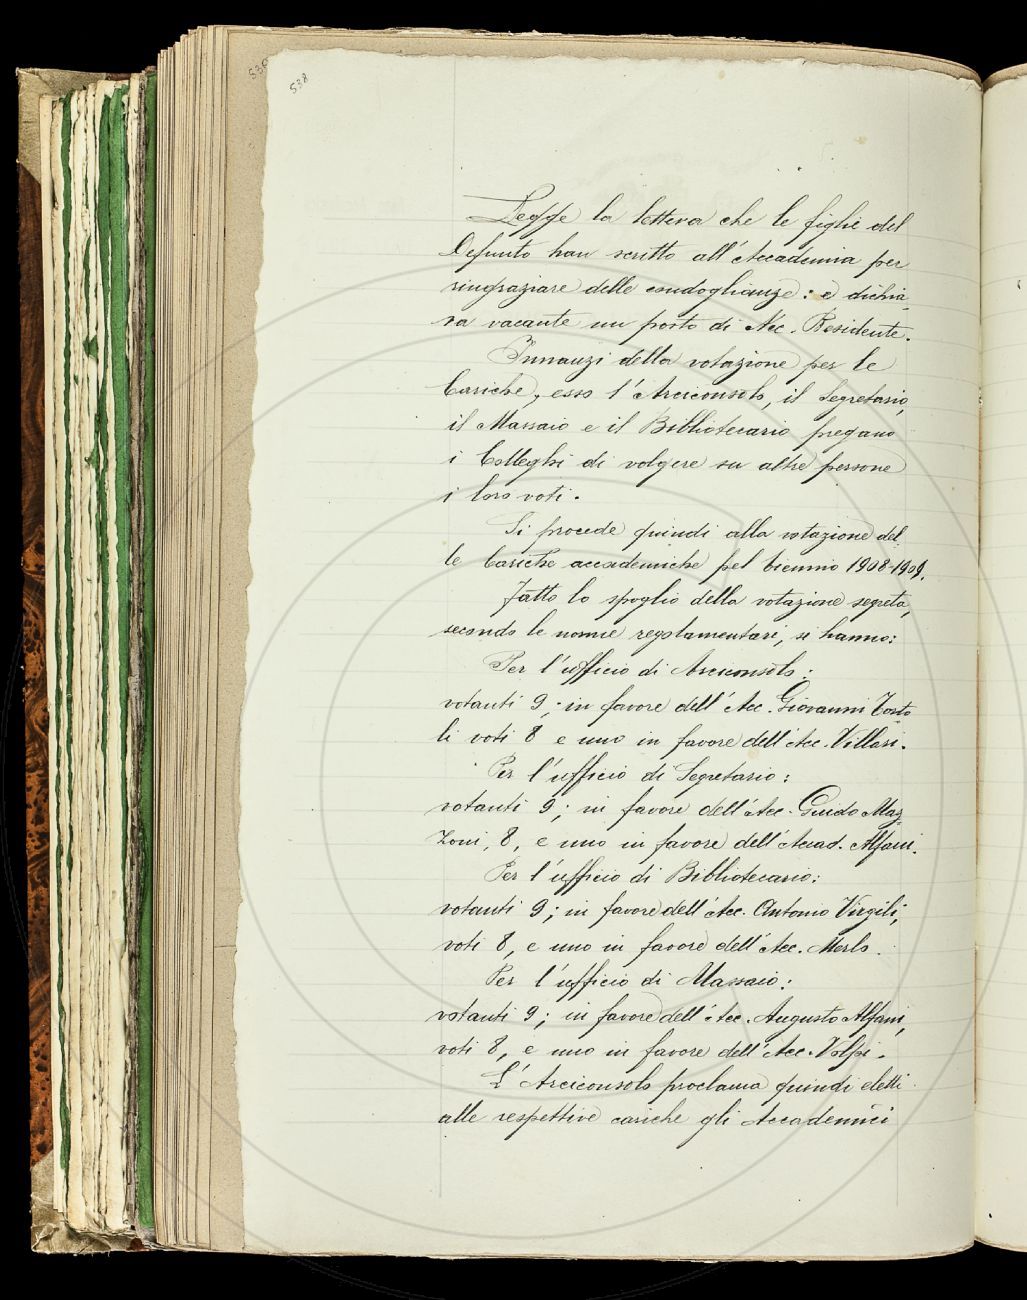 538
Legge la lettera che le figlie del
Defunto han scritto all'Accademia per
ringraziare delle condoglianze: e dichia-
ra vacante un posto di Acc. Residente.
Innanzi della votazione per le
Cariche, esso l'Arciconsolo, il Segretario,
il Massaio e il Bibliotecario pregano
i Colleghi di volgere su altre persone
i loro voti.
Si procede quindi alla votazione del-
le Cariche accademiche pel biennio 1908-1909.
Fatto lo spoglio della votazione segreta,
secondo le norme regolamentari, si hanno:
Per l'ufficio di Arciconsolo:
votanti 9; in favore dell'Acc. Giovanni Torto
li voti 8 e uno in favore dell'Acc. Villari.
Per l'ufficio di Segretario:
votanti 9; in favore dell'Acc. Guido Maz-
zoni, 8, e uno in favore dell'Accad. Alfani.
Per l'ufficio di Bibliotecario:
votanti 9; in favore dell'Acc. Antonio Virgili,
voti 8, e uno in favore dell'Acc. Merlo.
Per l'ufficio di Massaio:
votanti 9; in favore dell'Acc. Augusto Alfani,
voti 8, e uno in favore dell'Acc. Volpi.
L'Arciconsolo proclama quindi eletti
alle respettive cariche gli Accademici